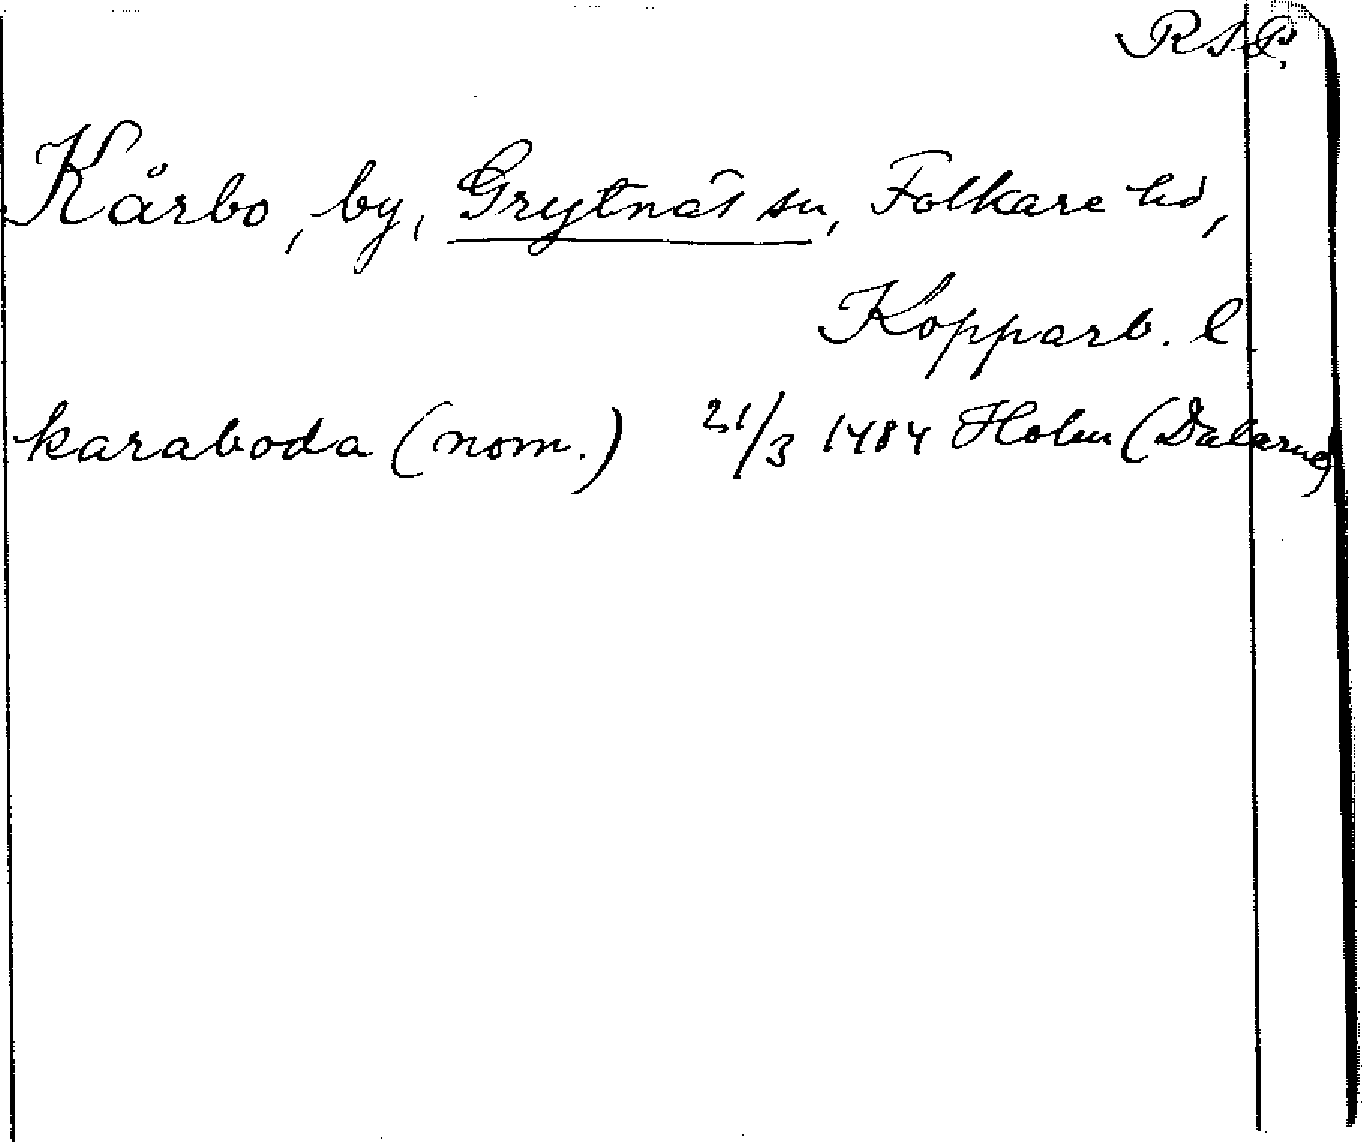 RAP.
Kårbo, by, Grytnäs sn, Folkare hd,
Kopparb. l
karaboda (nom.) 21/3 1484 Holm (Dalarne)